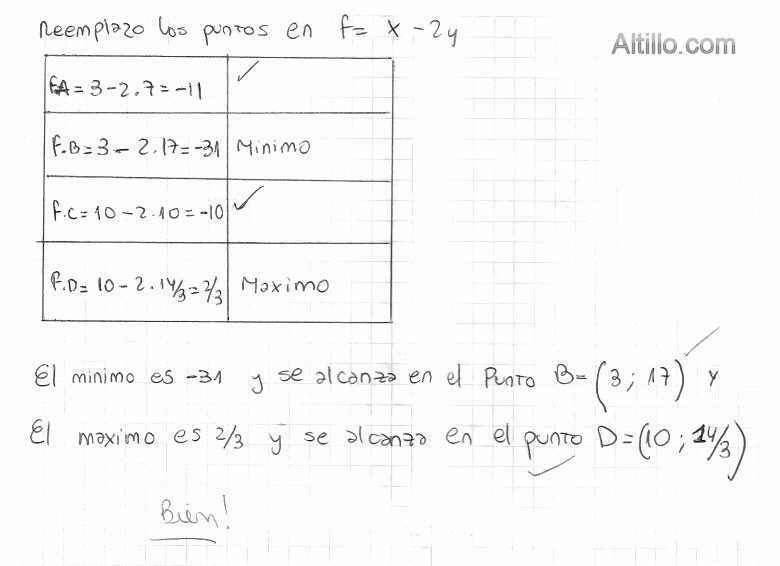 Reemplazo los puntos en f= x - 2y
Altillo.com
f.A = 3 - 2.7 = -11 ✓
f.B = 3 - 2.17 = -31 Minimo
f.C = 10 - 2.10 = -10 ✓
f.D = 10 - 2.14/3 = 2/3 Maximo
El minimo es -31 y se alcanza en el Punto B=(3; 17) y
El maximo es 2/3 y se alcanza en el punto D=(10; 14/3)
Bien!